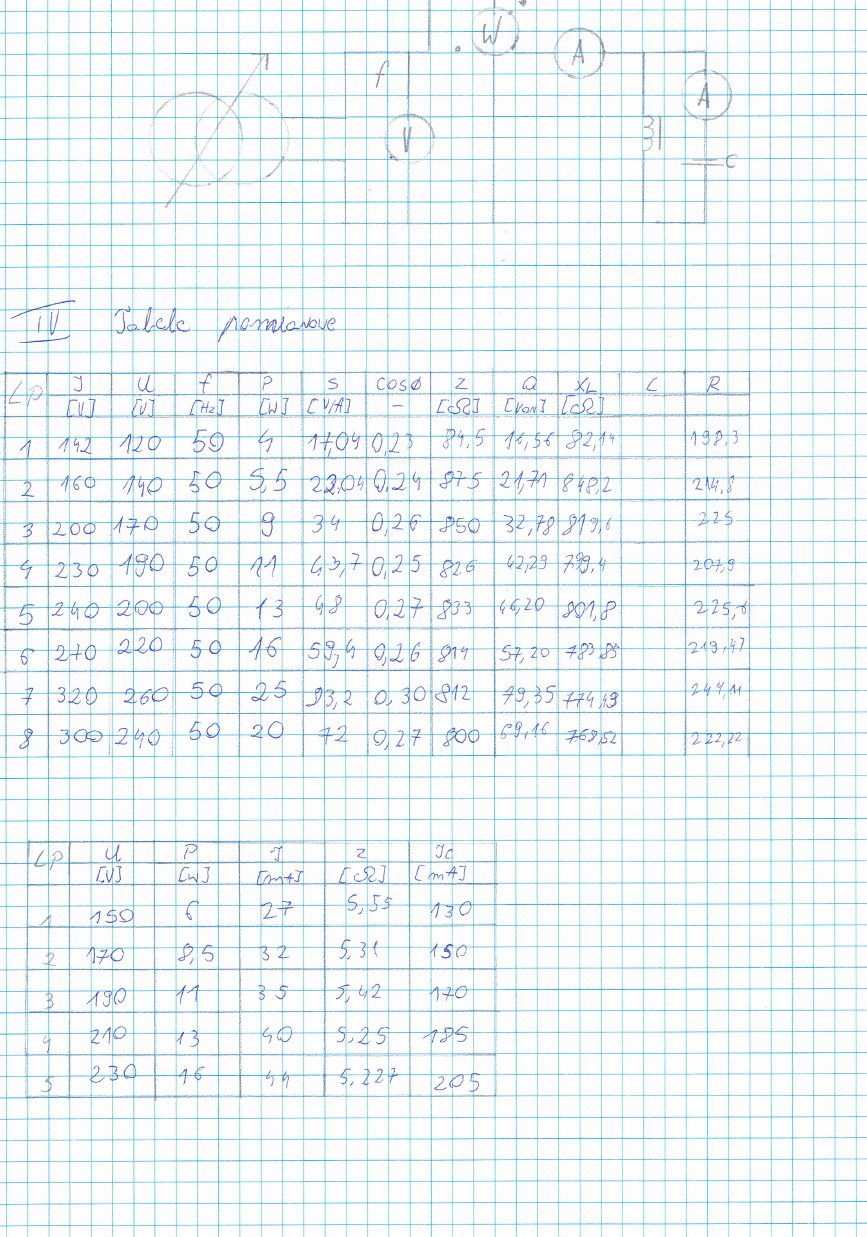 W
A
f
A
V
C
IV Tabele pomiarowe
LP J U f P S cosϕ Z Q XL L R
[V] [V] [Hz] [W] [V/A] - [cΩ] [Var] [cΩ]
1 142 120 50 4 17,04 0,23 84,5 16,56 82,14 198,3
2 160 140 50 5,5 22,04 0,24 875 21,71 848,2 214,8
3 200 170 50 9 34 0,26 850 32,78 819,6 225
4 230 190 50 11 43,7 0,25 826 42,29 799,4 207,9
5 240 200 50 13 48 0,27 833 46,20 801,8 225,6
6 270 220 50 16 59,4 0,26 814 57,20 783,85 219,47
7 320 260 50 25 83,2 0,30 812 79,35 774,49 244,11
8 300 240 50 20 72 0,27 800 69,16 768,52 222,22
LP U P J Z Jc
[V] [W] [mA] [cΩ] [mA]
1 150 6 27 5,55 130
2 170 8,5 32 5,31 150
3 190 11 35 5,42 170
4 210 13 40 5,25 185
5 230 16 44 5,227 205